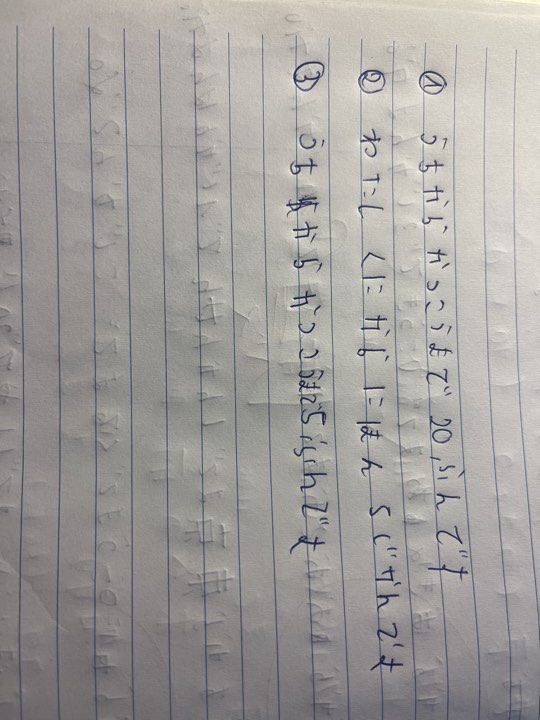 ① うちからがっこうまで 20 ぷんです
② わたし くにからにほん 5じかんです
③ うちからがっこうまで5ふんです